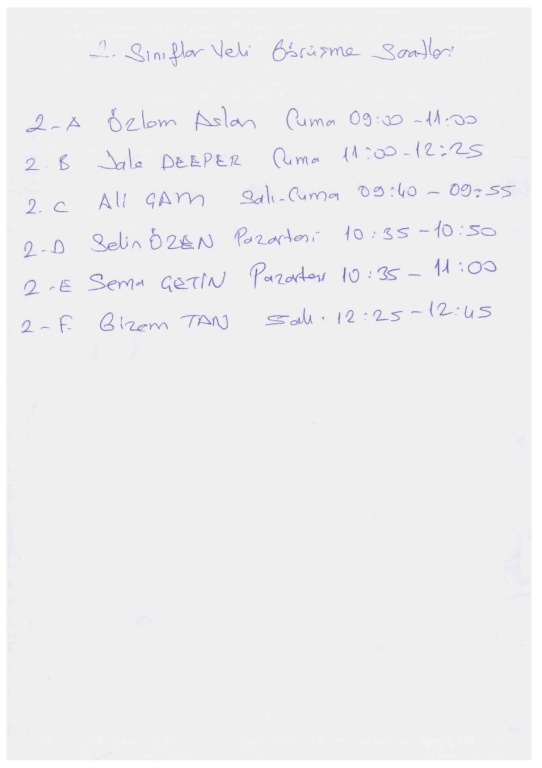 2. Sınıflar Veli Görüşme Saatleri
2-A Özlem Aslan Cuma 09:00-11:00
2.B Jale DEEPER Cuma 11:00-12:25
2.C Ali GAM Salı-Cuma 09:40-09:55
2-D Selin ÖZEN Pazartesi 10:35-10:50
2-E Sema GETİN Pazartesi 10:35-11:00
2-F. Gizem TAN Salı. 12:25-12:45